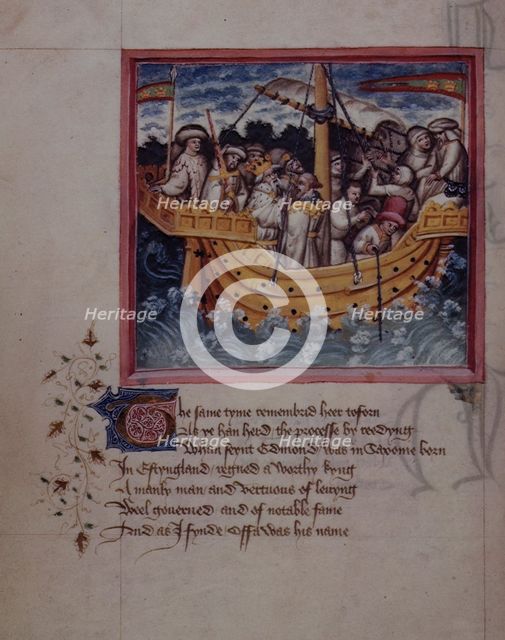 Heritage Heritage
©
Heritage Heritage
The same tyme remembrid heer toforn
As ye han herd / the processe by reedyng
Whan seynt Edmond / was in Saxonie born
In Estyngland / regned a worthy kyng
A manly man / and vertuous of levyng
Weel governed / and of notable fame
And as I fynde / Offa was his name
Heritage Heritage